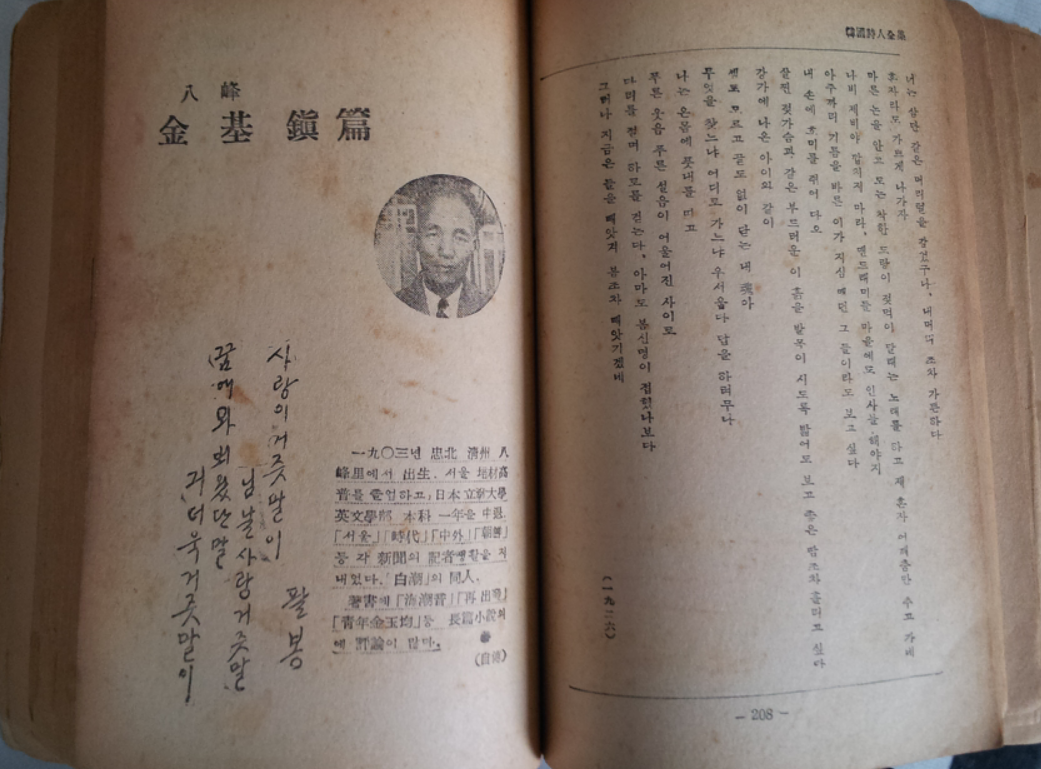 韓國詩人全集
너는 삼단 같은 머리털을 감었구나, 내머리 조차 가뿐하다
혼자라도 가쁘게 나가자
마른 논을 안고 도는 착한 도랑이 젖먹이 달래는 노래를 하고 제 혼자 어깨춤만 추고 가네
나비 제비야 깝치지 마라, 맨드래미들 마을에도 인사를 해야지
아주까리 기름을 바른 이가 지심 매던 그 들이라도 보고 싶다
내 손에 호미를 쥐어 다오
살찐 젖가슴과 같은 부드러운 이 흙을 발목이 시도록 밟어도 보고 좋은 땀조차 흘리고 싶다
강가에 나온 아이와 같이
셈도 모르고 끝도 없이 닫는 내 魂아
무엇을 찾느냐 어디로 가느냐 우서웁다 답을 하려무나
나는 온몸에 풋내를 띠고
푸른 웃음 푸른 설음이 어울어진 사이로
다리를 절며 하로를 걷는다, 아마도 봄신명이 접혔나보다
그러나 지금은 들을 빼앗겨 봄조차 빼앗기겠네
(一九二六)
— 208 —
八峰
金基鎭篇
一九〇三년 忠北 淸州 八
峰里에서 出生. 서울 培材高
普를 졸업하고, 日本 立敎大學
英文學部 本科 一年을 中退.
「서울」「時代」「中外」「朝鮮」
등 각 新聞의 記者생활을 지
내었다.「白潮」의 同人.
著書에「海潮音」「再出發」
「靑年金玉均」등 長篇小說외
에 評論이 많다.
(自傳)
사랑이 거즛말이
님 날 사랑 거즛말
꿈에 와 뵈왔단 말
귀 더욱 거즛말이
팔봉